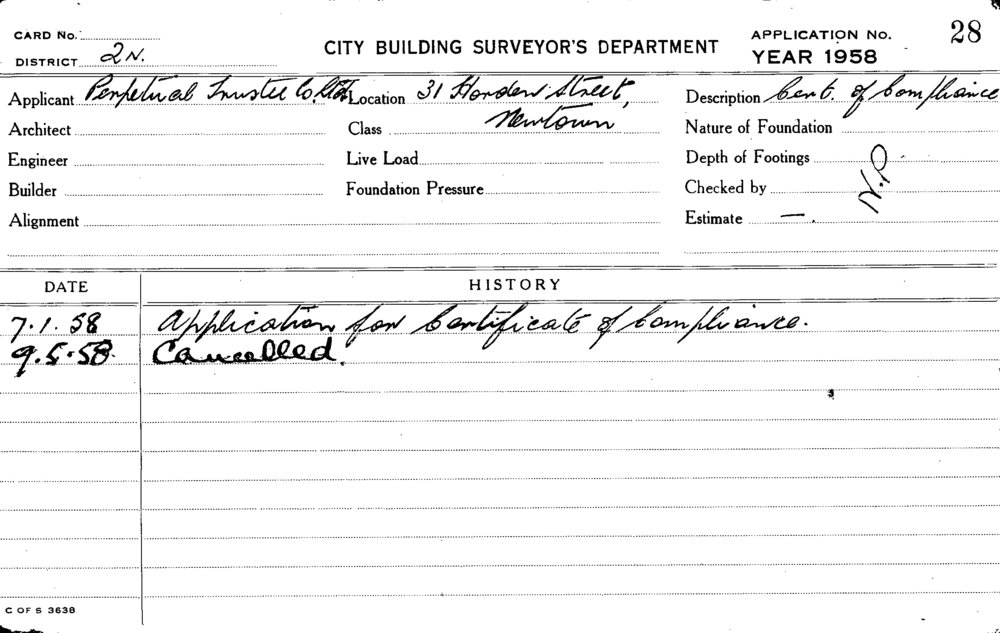 CARD No.
DISTRICT 2N.
CITY BUILDING SURVEYOR'S DEPARTMENT
APPLICATION No. 28
YEAR 1958
Applicant Perpetual Trustee Co. Ltd. Location 31 Horden Street, Description Cert. of Compliance
Architect Class Newtown Nature of Foundation
Engineer Live Load Depth of Footings
Builder Foundation Pressure Checked by N.P
Alignment Estimate —.
DATE HISTORY
7.1.58 Application for Certificate of Compliance.
9.5.58. Cancelled.
C OF S 3638